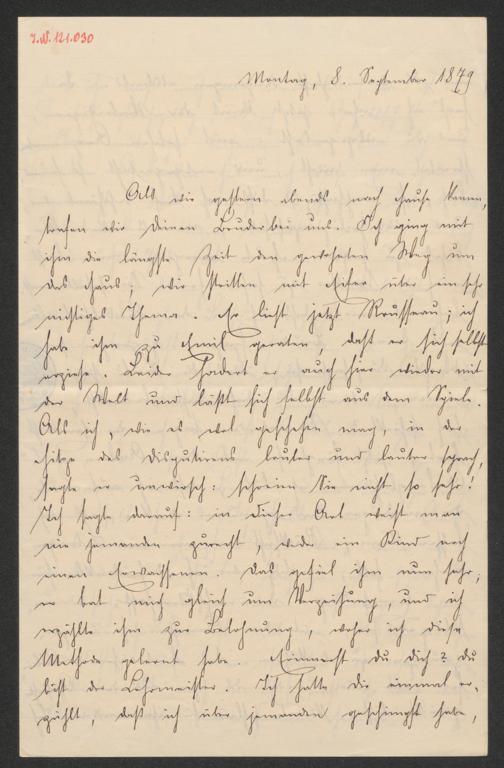 I.N. 121.030
Montag, 8. September 1879
Als wir gestern abends nach Hause kamen,
trafen wir deinen Bruder bei uns. Ich ging mit
ihm die längste Zeit den gewohnten Weg um
das Haus; wir stritten mit Eifer über ein sehr
wichtiges Thema. Er liest jetzt Rousseau; ich
habe ihm zu Emil geraten, daß er sich selbst
erziehe. Leider hadert er auch hier wieder mit
der Welt und läßt sich selbst aus dem Spiele.
Als ich, wie es wol geschehen mag, in der
Hitze des Disputirens lauter und lauter sprach,
sagte er unwirsch: schreien Sie nicht so sehr!
Ich sagte darauf: in dieser Art weist man
nie jemanden zurecht, weder ein Kind noch
einen Erwachsenen. Das gefiel ihm nun sehr;
er bat mich gleich um Verzeihung, und ich
erzählte ihm zur Belohnung, woher ich diese
Methode gelernt habe. Erinnerst du dich? du
bist der Lehrmeister. Ich hatte dir einmal er-
zählt, daß ich über jemanden geschimpft habe,